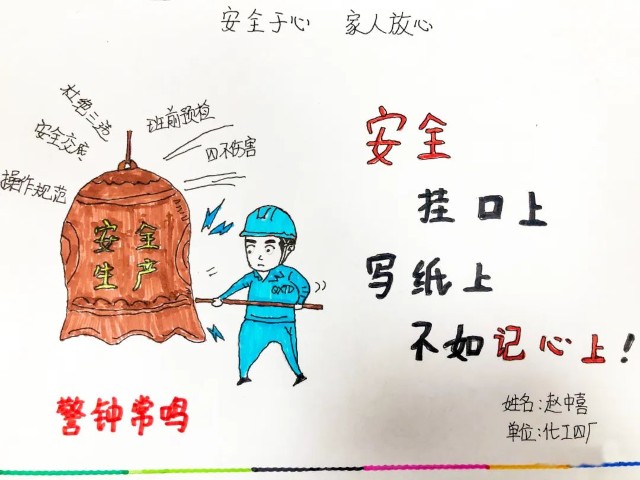 安全于心 家人放心
杜绝三违
安全交底
操作规范
班前预检
四不伤害
安全
生产
GXTD
警钟常鸣
安全
挂口上
写纸上
不如记心上！
姓名：赵中喜
单位：化工四厂